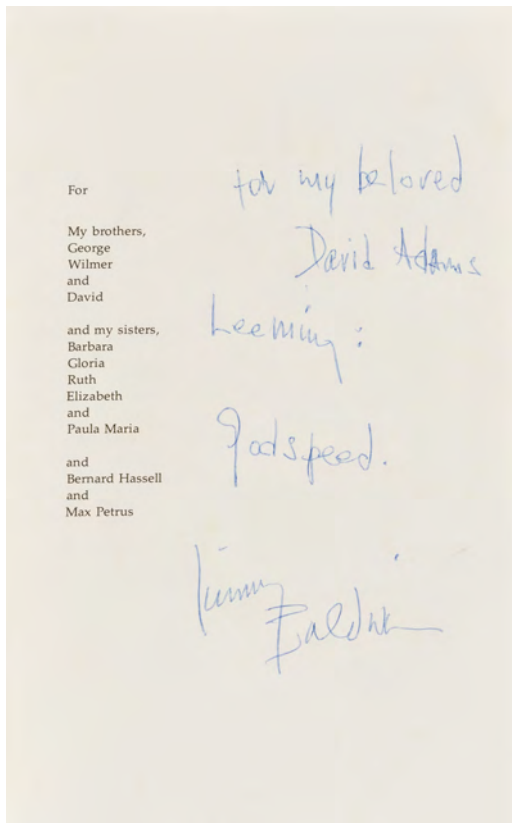 For
My brothers,
George
Wilmer
and
David
and my sisters,
Barbara
Gloria
Ruth
Elizabeth
and
Paula Maria
and
Bernard Hassell
and
Max Petrus
for my beloved
David Adams
Leeming:
Godspeed.
Jimmy
Baldwin